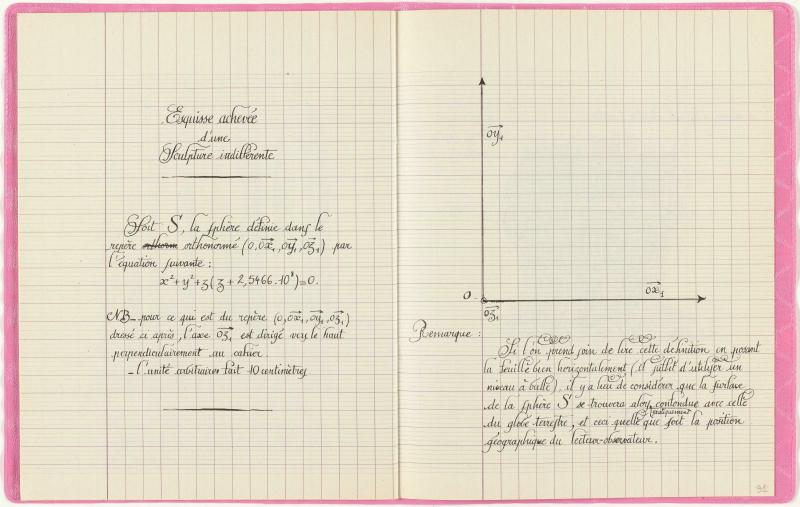 Esquisse achevée
d'une
Sculpture indifférente
Soit S, la sphère définie dans le
repère orthorm orthonormé (0,0x₁,0y₁,0z₁) par
l'équation suivante :
x²+y²+z(z+2,5466.10⁸)=0.
NB_ pour ce qui est du repère (0,0x₁,0y₁,0z₁)
dressé ci après, l'axe 0z₁ est dirigé vers le haut
perpendiculairement au cahier
_ l'unité arbitraire fait 10 centimètres
0y₁
0
0x₁
0z₁
Remarque :
Si l'on prend soin de lire cette définition en posant
la feuille bien horizontalement (il suffit d'utiliser un
niveau à bulle), il y a lieu de considérer que la surface
de la sphère S se trouvera alors confondue avec celle
du globe terrestre, et ceci quelle que soit pratiquement la position
géographique du lecteur-observateur.